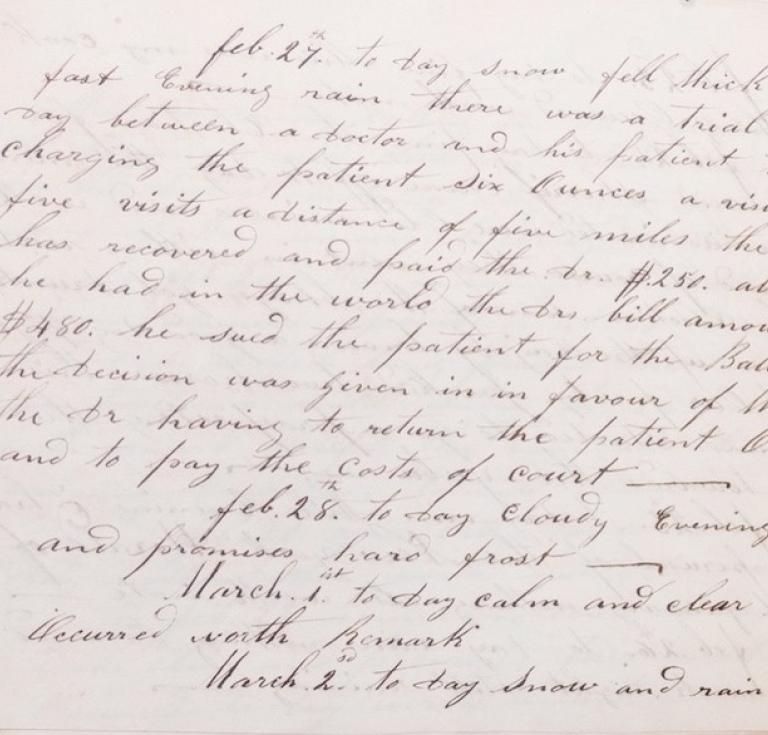 feb. 27th. to day snow fell thick
fast Evening rain there was a trial
day between a doctor and his patient
charging the patient six Ounces a visi
five visits a distance of five miles the
has recovered and paid the dr. $.250. al
he had in the world the drs bill amou
$480. he sued the patient for the Bal
the decision was given in in favour of th
the dr having to return the patient
and to pay the costs of court —
feb. 28th. to day cloudy Evening
and promises hard frost —
March. 1st. to day calm and clear
Occurred worth Remark
March. 2nd. to day snow and rain